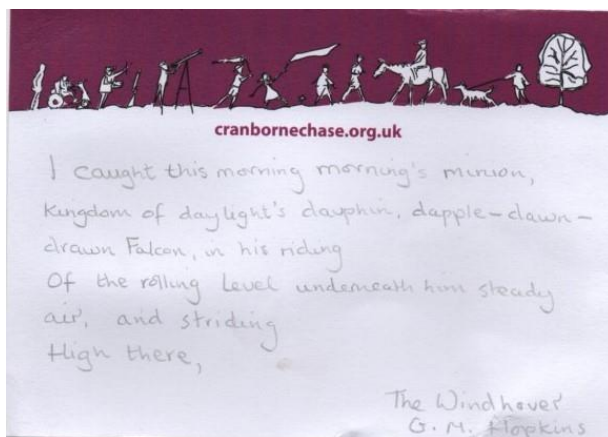 cranbornechase.org.uk
I caught this morning morning's minion,
Kingdom of daylight's dauphin, dapple-dawn-
drawn Falcon, in his riding
Of the rolling Level underneath him steady
air, and striding
High there,
The Windhover
G. M. Hopkins